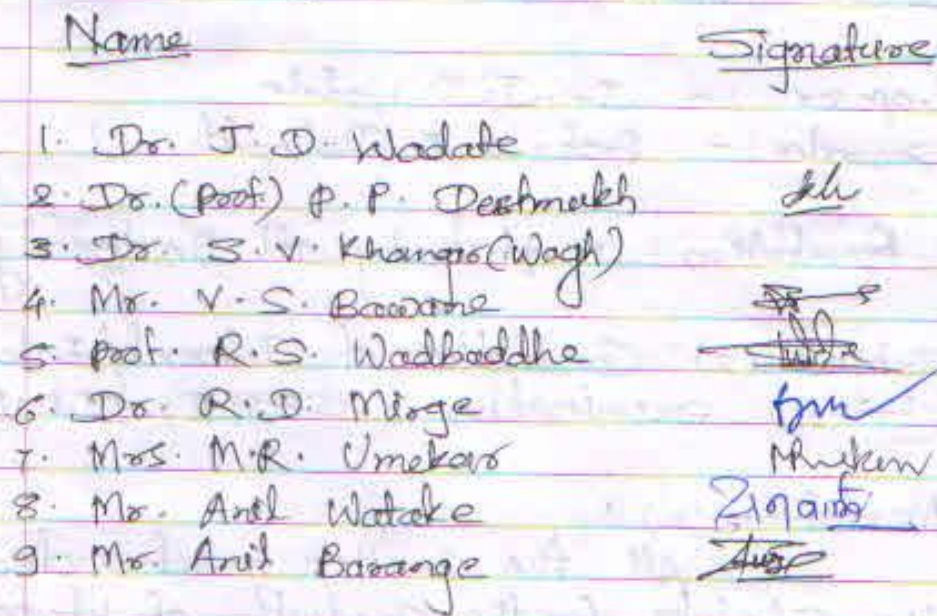 Name Signature
1. Dr. J. D. Wadate
2. Dr. (Prof.) P. P. Deshmukh
3. Dr. S. V. Khangar (Wagh)
4. Mr. V. S. Bawane
5. Prof. R. S. Wadbaddhe
6. Dr. R. D. Mirge
7. Mrs. M. R. Umekar
8. Mr. Anil Watake
9. Mr. Anil Barange